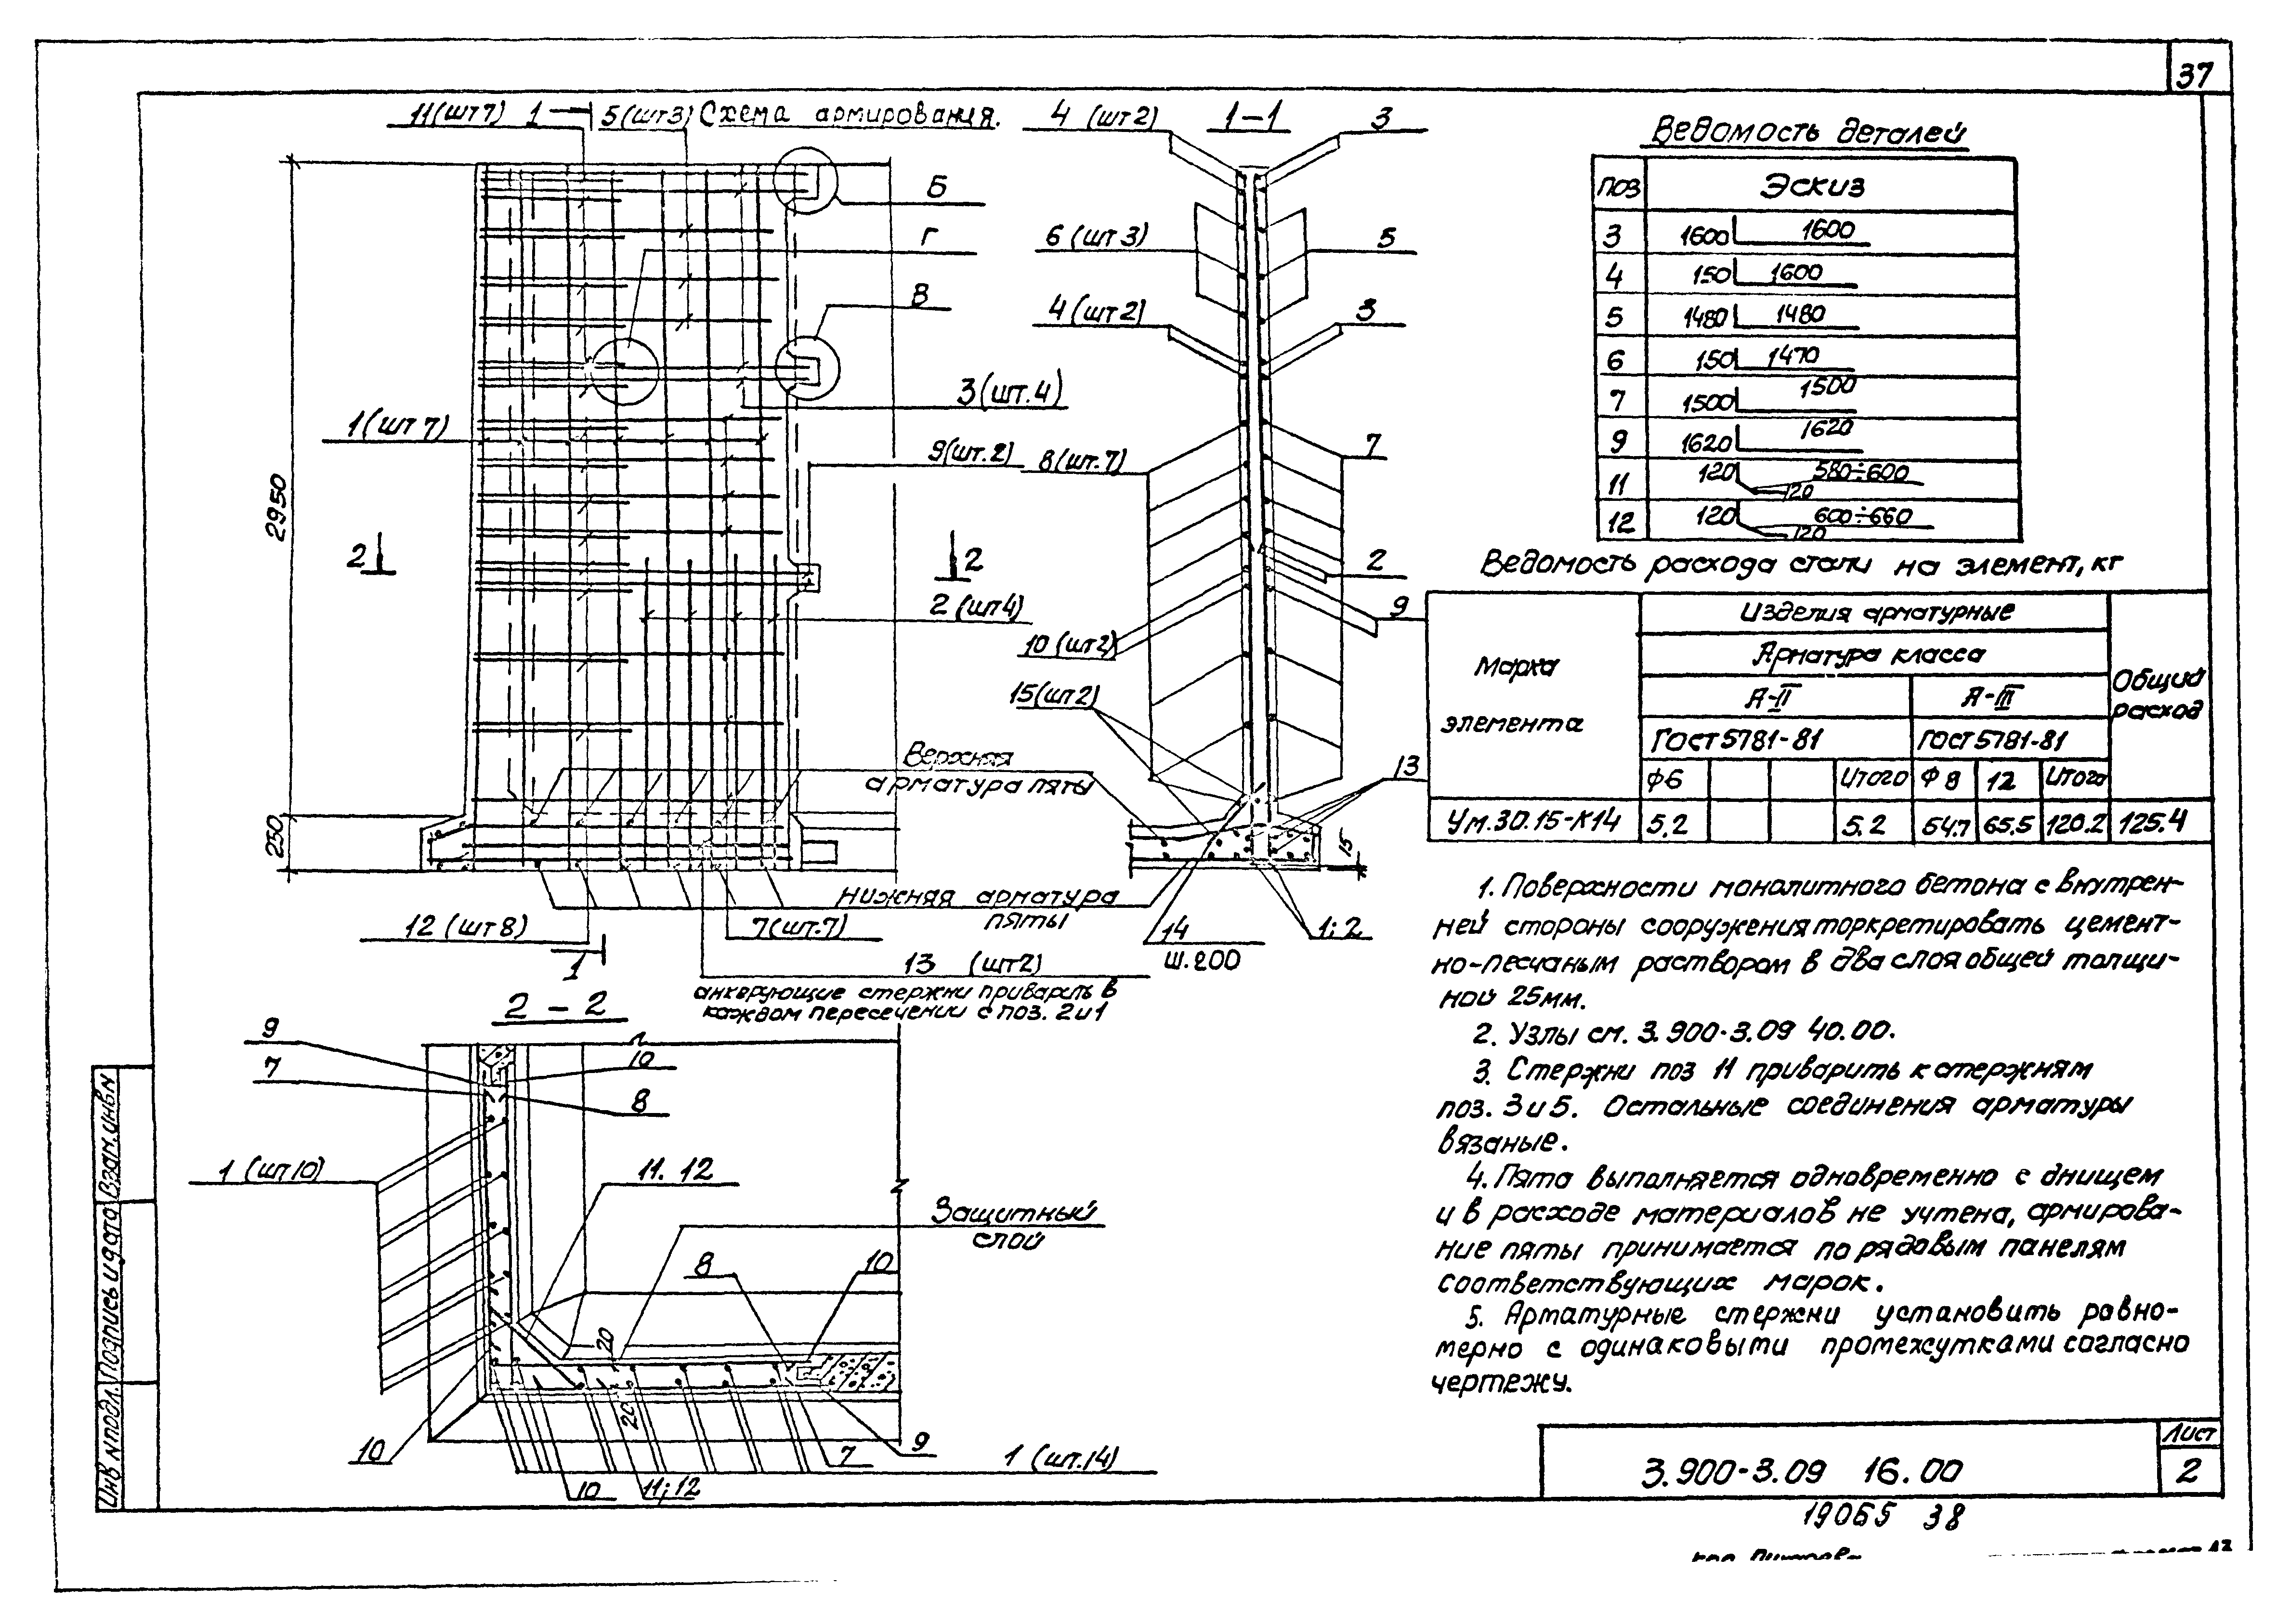 37
Схема армирования.
11(шт7)
1
5(шт3)
Б
Г
В
3(шт.4)
1(шт 7)
9(шт.2)
2950
2
2
2 (шт4)
Верхняя
арматура пяты
250
Нижняя арматура
пяты
12 (шт 8)
7(шт.7)
1
13 (шт2)
анкерующие стержни приварить в
каждом пересечении с поз. 2и1
1-1
4 (шт2)
3
6 (шт3)
5
4(шт2)
3
8(шт.7)
7
2
9
10 (шт2)
15(шт2)
13
15
14
ш.200
1; 2
2 - 2
9
10
7
8
1 (шт10)
11. 12
Защитный
слой
8
10
20
20
10
9
7
1 (шт.14)
10
11; 12
Ведомость деталей
поз Эскиз
3 1600 1600
4 150 1600
5 1480 1480
6 150 1470
7 1500 1500
9 1620 1620
11 120 580÷600 120
12 120 600÷660 120
Ведомость расхода стали на элемент, кг
Марка
элемента
Изделия арматурные
Арматура класса
А-II А-III
Общий
расход
ГОСТ5781-81 ГОСТ5781-81
Ф6 Итого Ф8 12 Итого
Ум.30.15-К14 5.2 5.2 54.7 65.5 120.2 125.4
1. Поверхности монолитного бетона с внутрен-
ней стороны сооружения торкретировать цемент-
но-песчаным раствором в два слоя общей толщи-
ной 25мм.
2. Узлы см. 3.900-3.09 40.00.
3. Стержни поз 11 приварить к стержням
поз. 3 и 5. Остальные соединения арматуры
вязаные.
4. Пята выполняется одновременно с днищем
и в расходе материалов не учтена, армирова-
ние пяты принимается по рядовым панелям
соответствующих марок.
5. Арматурные стержни установить равно-
мерно с одинаковыми промежутками согласно
чертежу.
3.900-3.09 16.00
Лист
2
19065 38
Инв N подл. Подпись и дата Взам.инв N